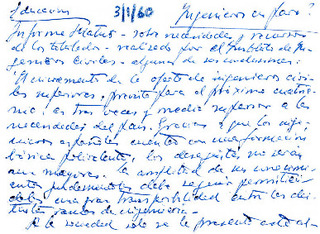 Educación 3/1/60 Ingenieros en paro?
Informe Matut - sobre necesidades y recursos
de los titulados - realizado por el Instituto de In-
genieros Civiles - algunas de sus conclusiones:
"El incremento de la oferta de ingenieros civi-
les superiores, previsto para el próximo cuatrie-
nio, es tres veces y media superior a las
necesidades del país. Gracias a que los inge-
nieros españoles cuentan con una formación
básica polivalente, los desajustes no serán
aun mayores. La amplitud de sus conocimi-
entos fundamentales debe seguir permitién-
doles una gran transportabilidad entre las dis-
tintas ramas de ingeniería.
se le presenta